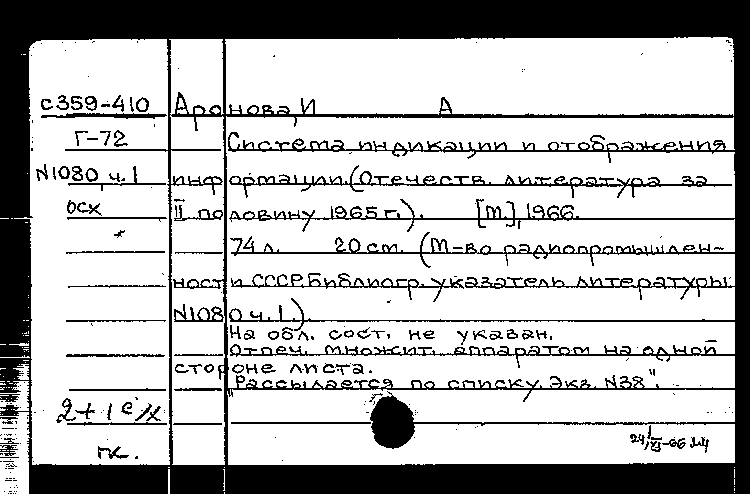 с359-410 Аронова, И А
Г-72 Система индикации и отображения
N1080, ч.1 информации. (Отечеств. литература за
осх II половину 1965 г.). [М.], 1966.
* 74 л. 20 см. (М-во радиопромышлен-
ности СССР. Библиогр. указатель литературы
N1080 ч.1.).
На обл. сост. не указан.
Отпеч. множит. аппаратом на одной
стороне листа.
"Рассылается по списку. Экз. N38".
2+1 е/х
гк.